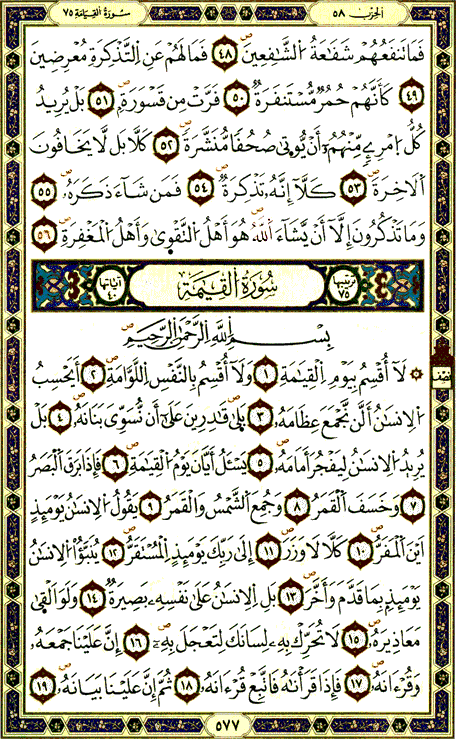 الحزب ٥٨
سورة القيامة ٧٥
فَمَا تَنفَعُهُمْ شَفَٰعَةُ اُ۬لشَّٰفِعِينَ ٤٨ فَمَا لَهُمْ عَنِ اِ۬لتَّذْكِرَةِ مُعْرِضِينَ
٤٩ كَأَنَّهُمْ حُمُرٞ مُّسْتَنفَرَةٞ ٥٠ فَرَّتْ مِن قَسْوَرَةِۢ ٥١ بَلْ يُرِيدُ
كُلُّ اُ۪مْرِےٕٖ مِّنْهُمُۥٓ أَنْ يُّوت۪يٰ صُحُفاٗ مُّنَشَّرَةٗ ٥٢ كَلَّا بَل لَّا يَخَافُونَ
اَ۬لَاخِرَةَ ٥٣ كَلَّآ إِنَّهُۥ تَذْكِرَةٞ ٥٤ فَمَن شَآءَ ذَكَرَهُۥ ٥٥
وَمَا تَذْكُرُونَ إِلَّآ أَنْ يَّشَآءَ اَ۬للَّهُ هُوَ أَهْلُ اُ۬لتَّقْو۪يٰ وَأَهْلُ اُ۬لْمَغْفِرَةِ ٥٦
ترتيبها ٧٥
سُورَةُ اُ۬لْقِيَٰمَةِ
آياتها ٤٠
بِسْمِ اِ۬للَّهِ اِ۬لرَّحْمَٰنِ اِ۬لرَّحِيمِ
۞ لَآ أُقْسِمُ بِيَوْمِ اِ۬لْقِيَٰمَةِ ١ وَلَآ أُقْسِمُ بِالنَّفْسِ اِ۬للَّوَّامَةِ ٢ أَيَحْسِبُ
اُ۬لِانسَٰنُ أَلَّن نَّجْمَعَ عِظَامَهُۥ ٣ بَل۪يٰ قَٰدِرِينَ عَلَيٰٓ أَن نُّسَوِّيَ بَنَانَهُۥ ٤ بَلْ
يُرِيدُ اُ۬لِانسَٰنُ لِيَفْجُرَ أَمَامَهُۥ ٥ يَسْـَٔلُ أَيَّانَ يَوْمُ اُ۬لْقِيَٰمَةِ ٦ فَإِذَا بَرَقَ اَ۬لْبَصَرُ
٧ وَخَسَفَ اَ۬لْقَمَرُ ٨ وَجُمِعَ اَ۬لشَّمْسُ وَالْقَمَرُ ٩ يَقُولُ اُ۬لِانسَٰنُ يَوْمَئِذٍ
اَيْنَ اَ۬لْمَفَرُّ ١٠ كَلَّا لَا وَزَرَ ١١ إِلَىٰ رَبِّكَ يَوْمَئِذٍ اِ۬لْمُسْتَقَرُّ ١٢ يُنَبَّؤُاْ اُ۬لِانسَٰنُ
يَوْمَئِذِۢ بِمَا قَدَّمَ وَأَخَّرَ ١٣ بَلِ اِ۬لِانسَٰنُ عَلَىٰ نَفْسِهِۦ بَصِيرَةٞ ١٤ وَلَوَ اَلْق۪يٰ
مَعَاذِيرَهُۥ ١٥ لَا تُحَرِّكْ بِهِۦ لِسَانَكَ لِتَعْجَلَ بِهِۦٓ ١٦ إِنَّ عَلَيْنَا جَمْعَهُۥ
وَقُرْءَانَهُۥ ١٧ فَإِذَا قَرَأْنَٰهُ فَاتَّبِعْ قُرْءَانَهُۥ ١٨ ثُمَّ إِنَّ عَلَيْنَا بَيَانَهُۥ ١٩
نصف
٥٧٧